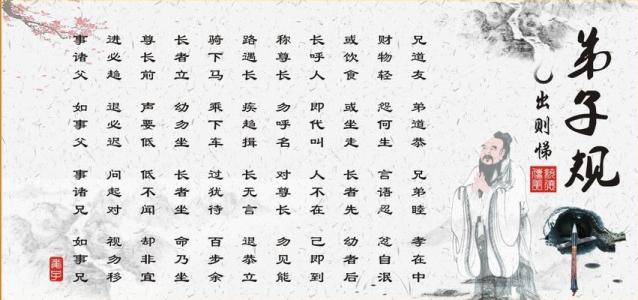 弟子规
出则悌
兄道友 弟道恭 兄弟睦 孝在中
财物轻 怨何生 言语忍 忿自泯
或饮食 或坐走 长者先 幼者后
长呼人 即代叫 人不在 己即到
称尊长 勿呼名 对尊长 勿见能
路遇长 疾趋揖 长无言 退恭立
骑下马 乘下车 过犹待 百步余
长者立 幼勿坐 长者坐 命乃坐
尊长前 声要低 低不闻 却非宜
进必趋 退必迟 问起对 视勿移
事诸父 如事父 事诸兄 如事兄